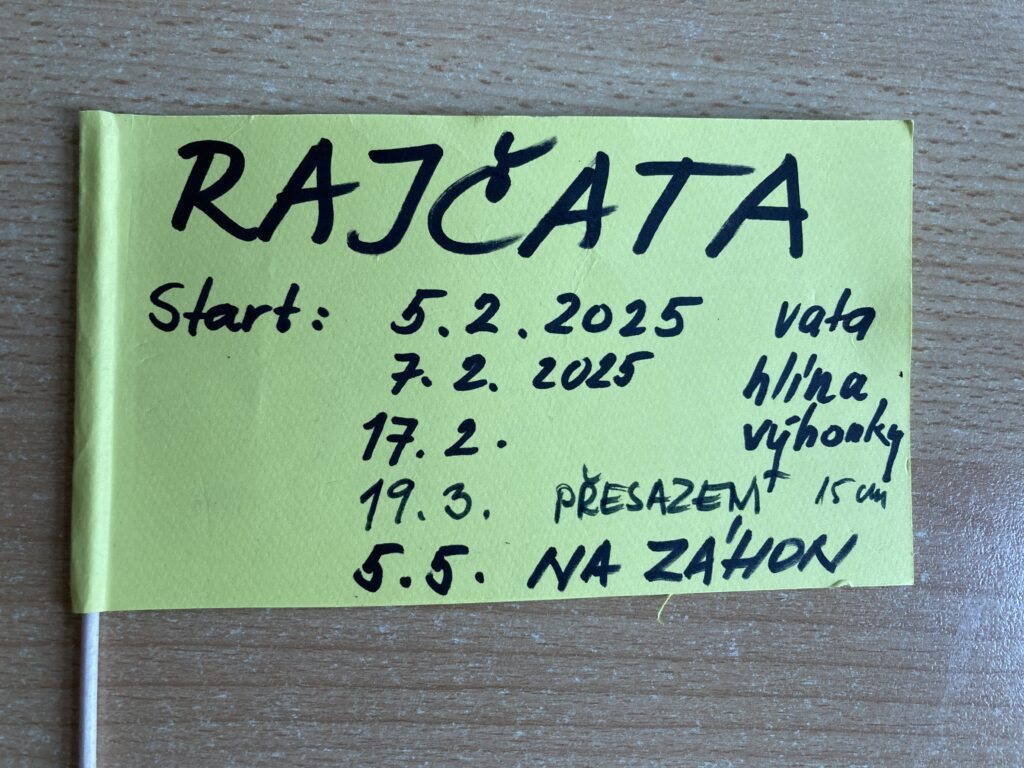 RAJČATA
Start: 5.2.2025 vata
7.2.2025 hlína
17.2. výhonky
19.3. PŘESAZEM 15 cm
5.5. NA ZÁHON